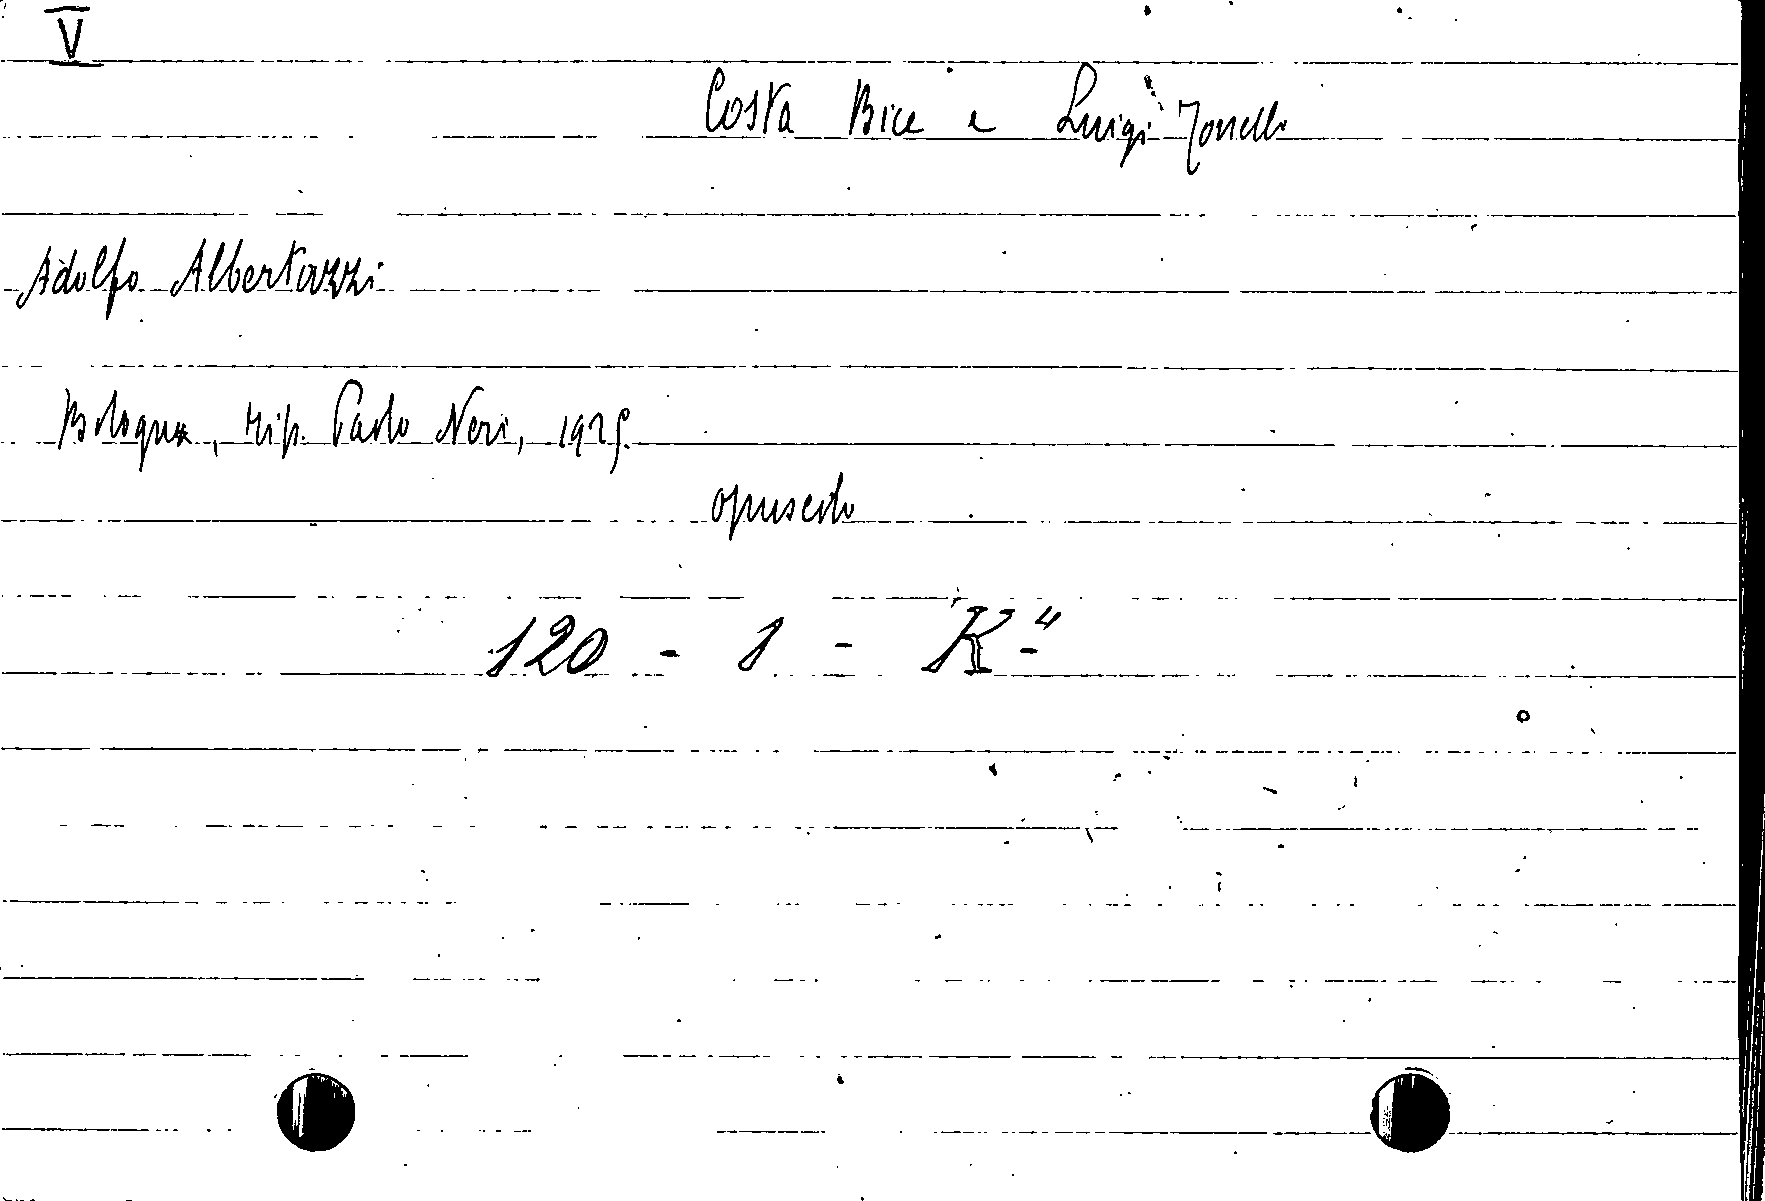 V
Costa Bice e Luigi Tonelli
Adolfo Albertazzi
Bologna, tip. Paolo Neri, 1925.
opuscolo
120 - 1 - K"